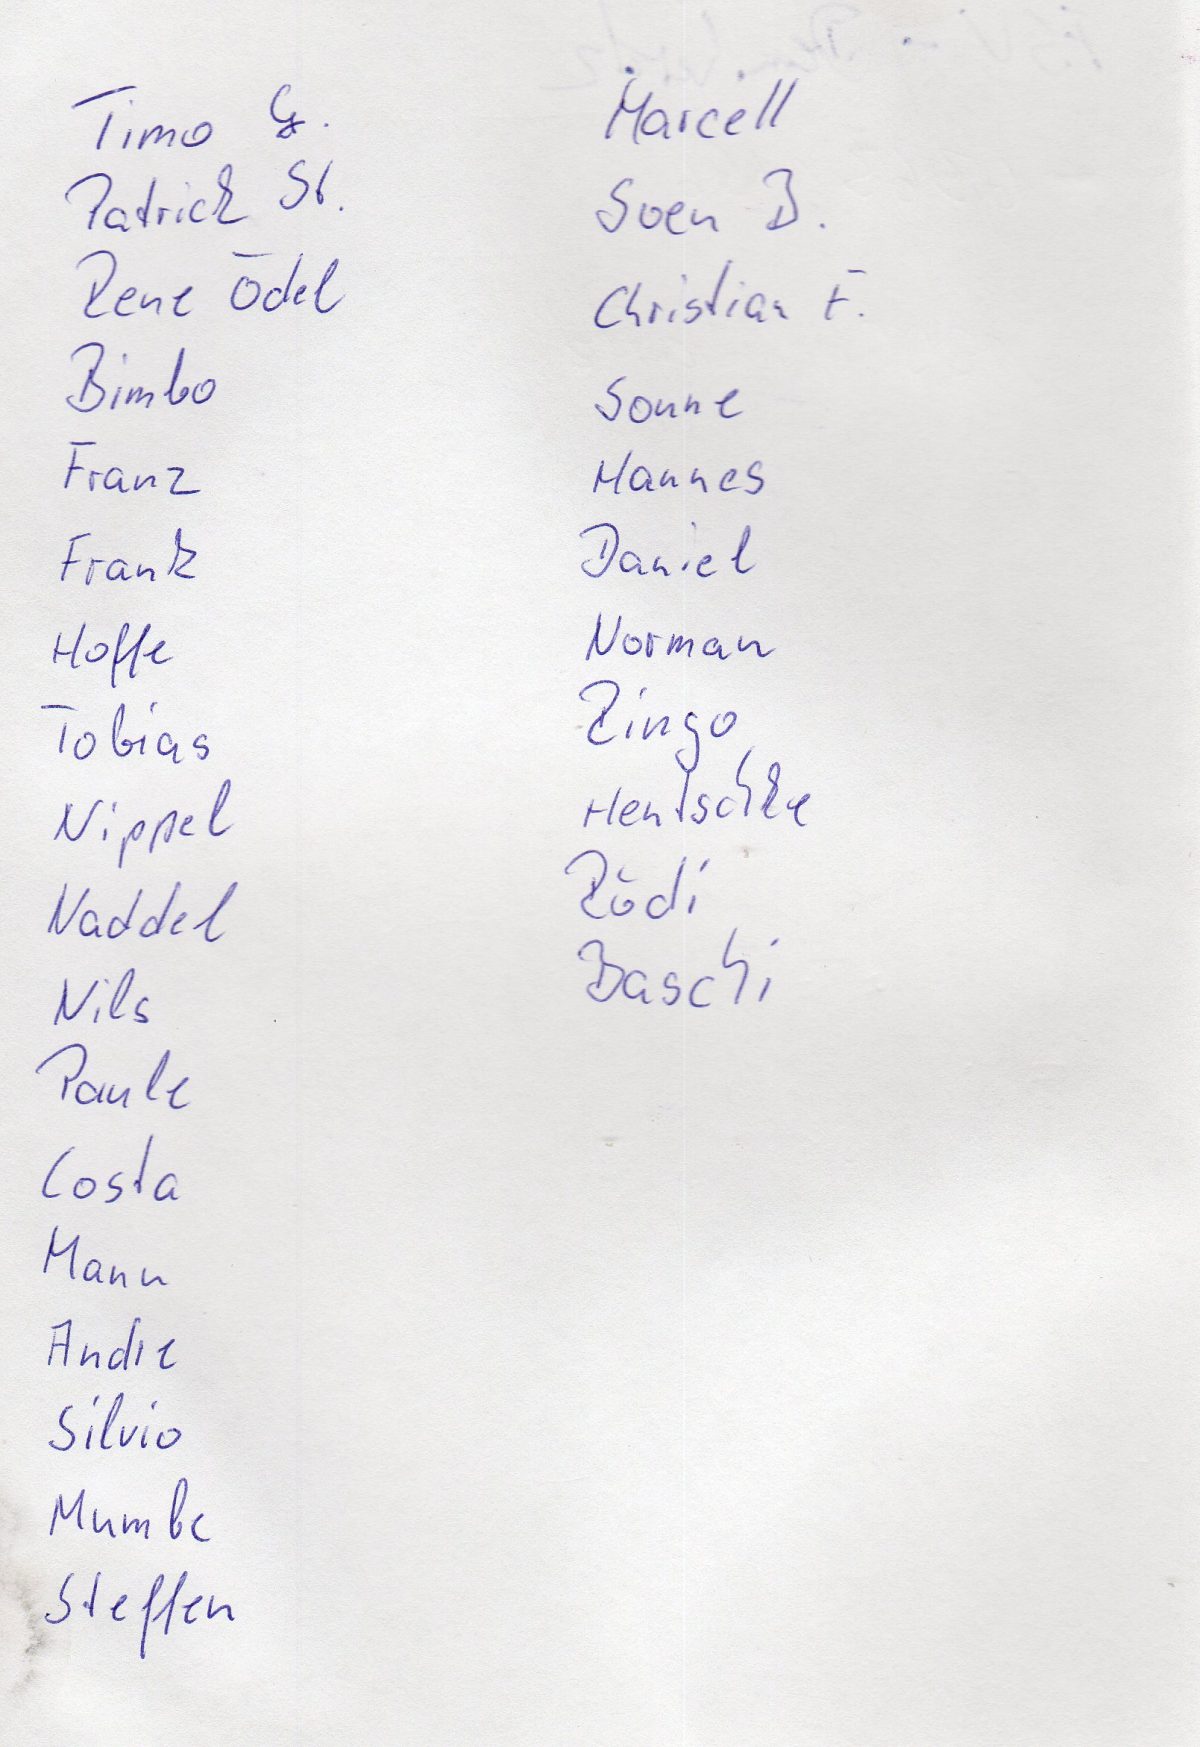 Timo G.
Patrick St.
Rene Ödel
Bimbo
Franz
Frank
Hoffe
Tobias
Nippel
Naddel
Nils
Paule
Costa
Mann
Andre
Silvio
Mumbe
Steffen
Marcell
Sven B.
Christian F.
Sonne
Hannes
Daniel
Norman
Ringo
Hentschke
Rödi
Baschi